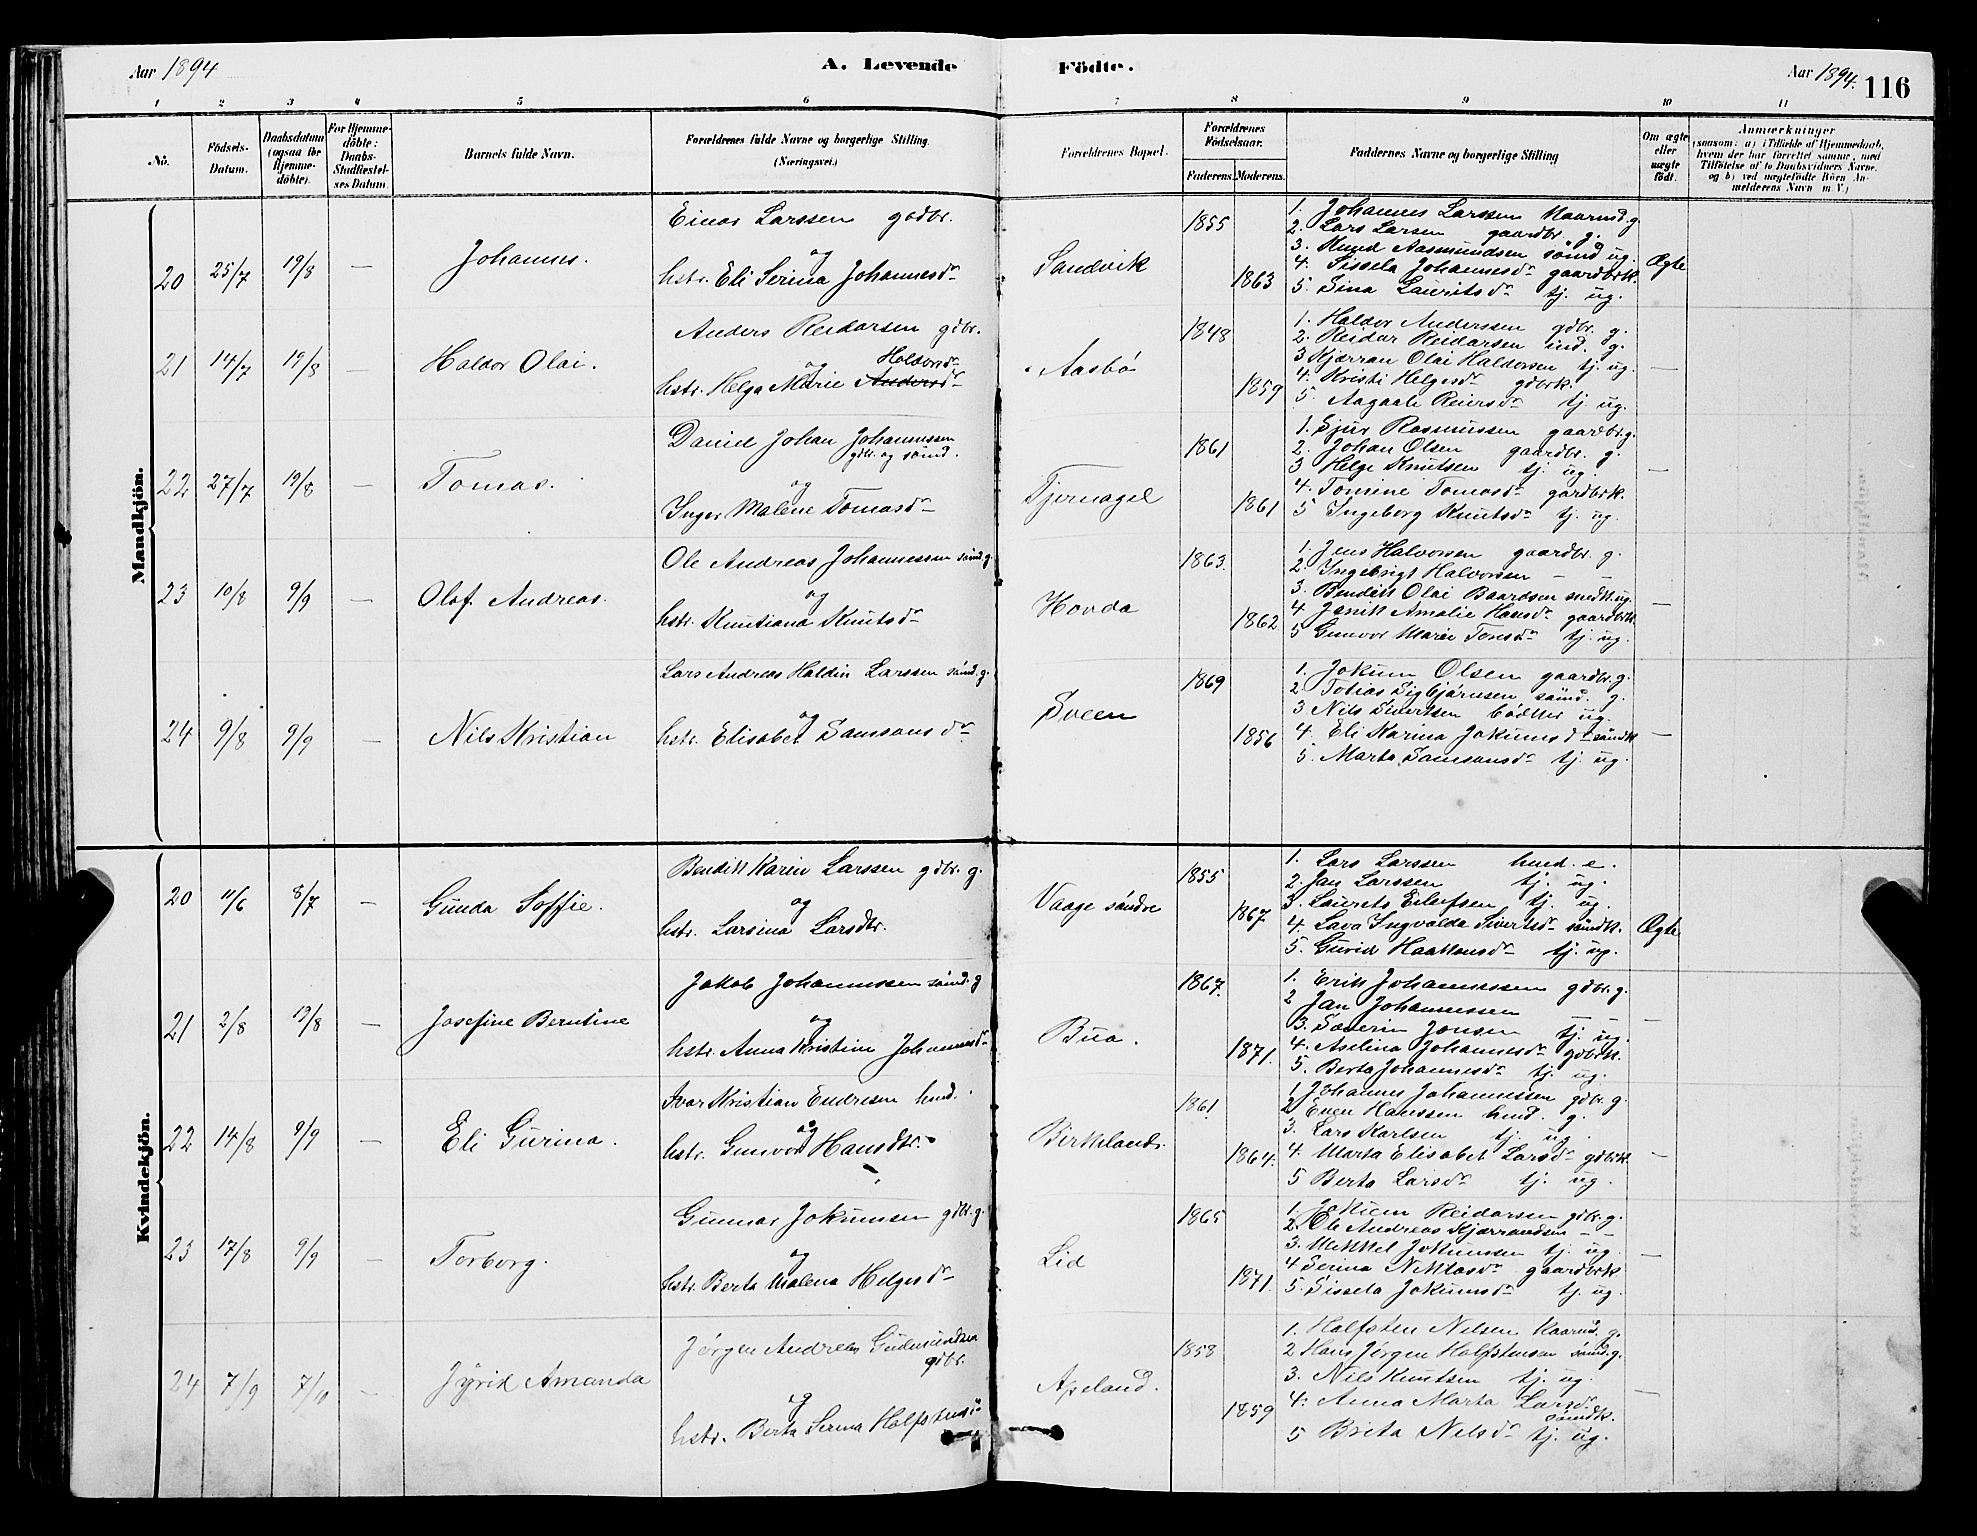 Aar 1894
A. Levende Fødte.
Aar 1894.
116
1 2 3 4 5 6 7 8 9 10 11
No.
Fødsels-
Datum.
Daabsdatum
(ogsaa for
Hjemme-
døbte).
For Hjemme-
døbte:
Daabs-
Stadfæstel-
ses Datum.
Barnets fulde Navn.
Forældrenes fulde Navne og borgerlige Stilling.
(Næringsvei.)
Forældrenes Bopæl.
Forældrenes
Fødselsaar.
Faderens. Moderens.
Faddernes Navne og borgerlige Stilling
Om ægte
eller
uægte
født.
Anmærkninger
(saasom: a) i Tilfælde af Hjemmedaab,
hvem der har forrettet samme, med
Tilføielse af to Daabsvidners Navne,
og b) ved uægtefødte Børn An-
melderens Navn m. V.)
Mandkjön.
20 25/7 19/8 — Johannes.
Einar Larssen gdbr.
og
hstr. Eli Serina Johannesdr
Sandvik
1855
1863
1. Johannes Larssen Kaarmd. g
2. Lars Larsen gaardbr. g.
3. Knud Aasmundsen sømd ug.
4. Sissela Johannesdr gaardbrk.
5. Sina Lauritsdr tj. ug.
Ægte
21 14/7 19/8 — Haldor Olai.
Anders Reidarsen gdbr.
og Haldorsdr
hstr. Helga Marie Andersdr
Aasbø
1848
1859
1. Haldor Anderssen gdbr. g.
2. Reidar Reidarsen ind. g.
3 Kjærran Olai Haldorsen tj. ug.
4. Kristi Helgesdr gdbrk.
5. Aagaate Reiersdr tj. ug.
—
22 27/7 19/8 — Tomas.
Daniel Johan Johannessen
gdbr. og sømd.
og
Inger Malene Tomasdr
Tjernagel
1861
1861
1. Sjur Rasmussen gaardbr. g.
2. Johan Olsen gaardbr. g.
3 Helge Knutsen tj. ug.
4. Tomine Tomasdr gardbrk.
5 Ingeborg Knutsdr tj. ug.
—
23 10/8 9/9 — Olaf Andreas.
Ole Andreas Johannessen sømd. g.
og
hstr. Knutiana Knutsdr
Hovda
1863.
1862
1. Jens Halvorsen gaardbr. g.
2. Ingebrigt Halvorsen — —
3. Bendik Olai Baardsen smdk. ug.
4. Janik Amalie Hansdr gaardbrk.
5 Gunvor Marie Tonsdr tj. ug.
—
24 9/8 9/9 — Nils Kristian
Lars Andreas Haldin Larssen sømd. g.
og
hstr. Elisabet Samsonsdr
Sveen
1869
1856
1. Jokum Olsen gaardbr. g.
2. Tobias Sigbjørnsen sømd. g.
3 Nils Sivertsen bødker ug.
4. Eli Karina Jokumsdr sømdk
5. Marta Samsonsdr tj. ug.
—
Kvindekjön.
20 11/6 8/7 — Gunda Soffie.
Bendik Karin Larssen gdbr. g.
og
hstr. Larsina Larsdtr.
Vaage søndre
1855
1867.
1. Lars Larssen hmd. e.
2. Jan Larssen tj. ug.
3. Laurets Eilufsen tj. ug.
4. Lava Ingvalda Sivertsdr sømdk.
5. Guvid Haakonsdr tj. ug.
Ægte
21 2/8 19/8 — Josefine Berntine
Jakob Johannessen sømd. g
og
hstr. Anna Kristine Johannesdr
Bua.
1867.
1871.
1. Erik Johannessen gdbr. g.
2 Jan Johannessen
3. Søverin Jonsen tj. ug.
4. Aselina Johannesdr gdbrk.
5. Berta Johannesdr tj. ug.
—
22 14/8 9/9 — Eli Gurina.
Ivar Kristian Endresen hmd.
og
hstr. Gunvor Hansdtr.
Birkeland.
1861
1864.
1 Johannes Johannessen gdbr. g.
2 Even Hanssen hmd. g.
3. Lars Karlsen tj. ug.
4. Marta Elisabet Larsdr gdbrk.
5 Berta Larsdr tj. ug.
—
23 17/8 9/9 — Torborg.
Gunnar Jokumsen gdbr. g.
og
hstr. Berta Malena Helgesdr
Lid
1865
1871.
1. Jokum Reidarsen gdbr. g.
2. Ole Andreas Kjærrandsen — —
3. Mikkel Jokumsen tj. ug.
4 Serina Niklasdr gaardbrk
5. Sissela Jokumsdr tj. ug.
—
24 7/9 7/10 — Jyrid Amanda
Jørgen Andreas Gudmundsen
gdbr.
og
hstr. Berta Serina Halfstensdr
Apeland.
1858
1859
1. Halfsten Nilsen Kaarmd. g.
2 Hans Jørgen Halfstensen sømd. g.
3. Nils Knutsen tj. ug.
4. Anna Marta Larsdr
sømdk.
5 Brita Nilsdr tj. ug.
—